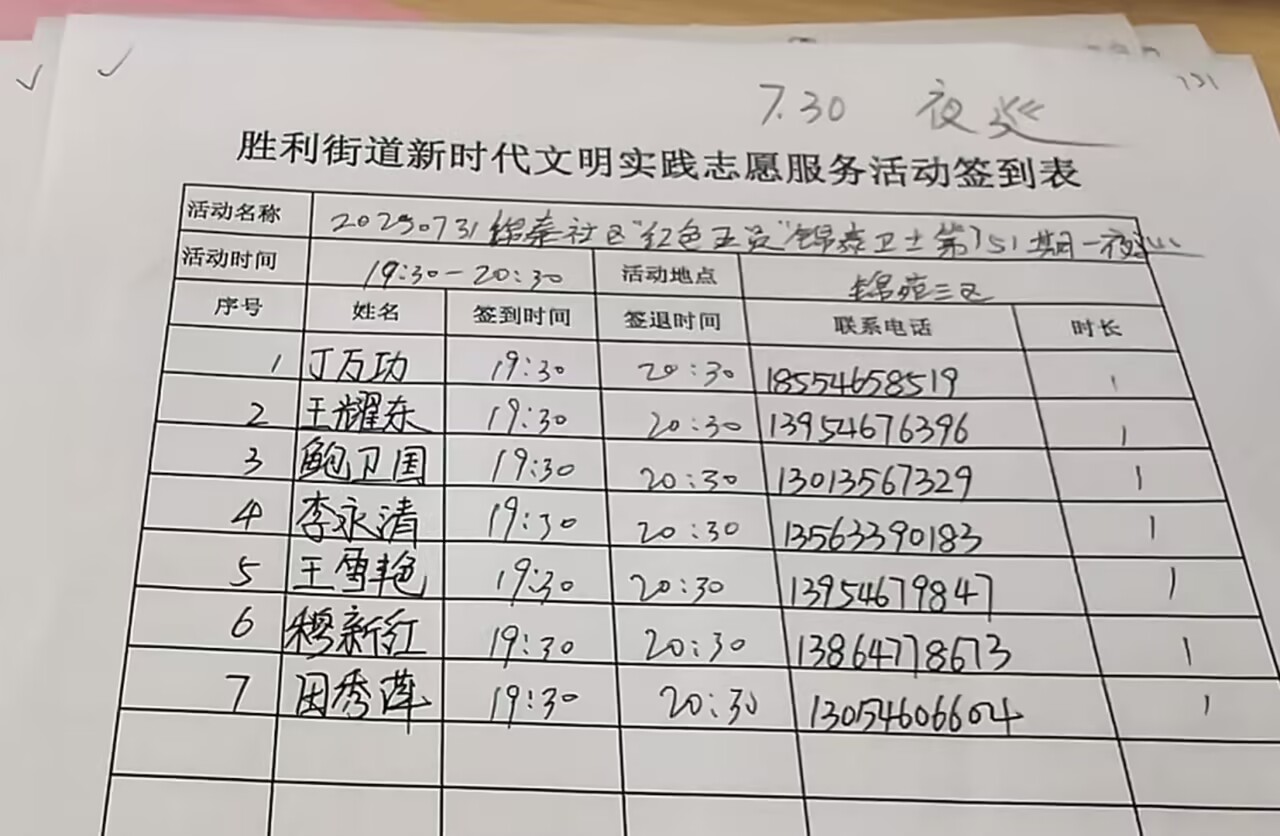 7.30 夜巡
731
胜利街道新时代文明实践志愿服务活动签到表
活动名称 20250731锦泰社区"红色正员"锦泰卫士第151期一夜巡
活动时间 19:30-20:30 活动地点 锦苑三区
序号 姓名 签到时间 签退时间 联系电话 时长
1 丁万功 19:30 20:30 18554658519 1
2 王耀东 19:30 20:30 13954676396 1
3 鲍卫国 19:30 20:30 13013567329 1
4 李永清 19:30 20:30 13563390183 1
5 王雪艳 19:30 20:30 13954679847 1
6 穆新红 19:30 20:30 13864778673 1
7 田秀萍 19:30 20:30 13054606604 1